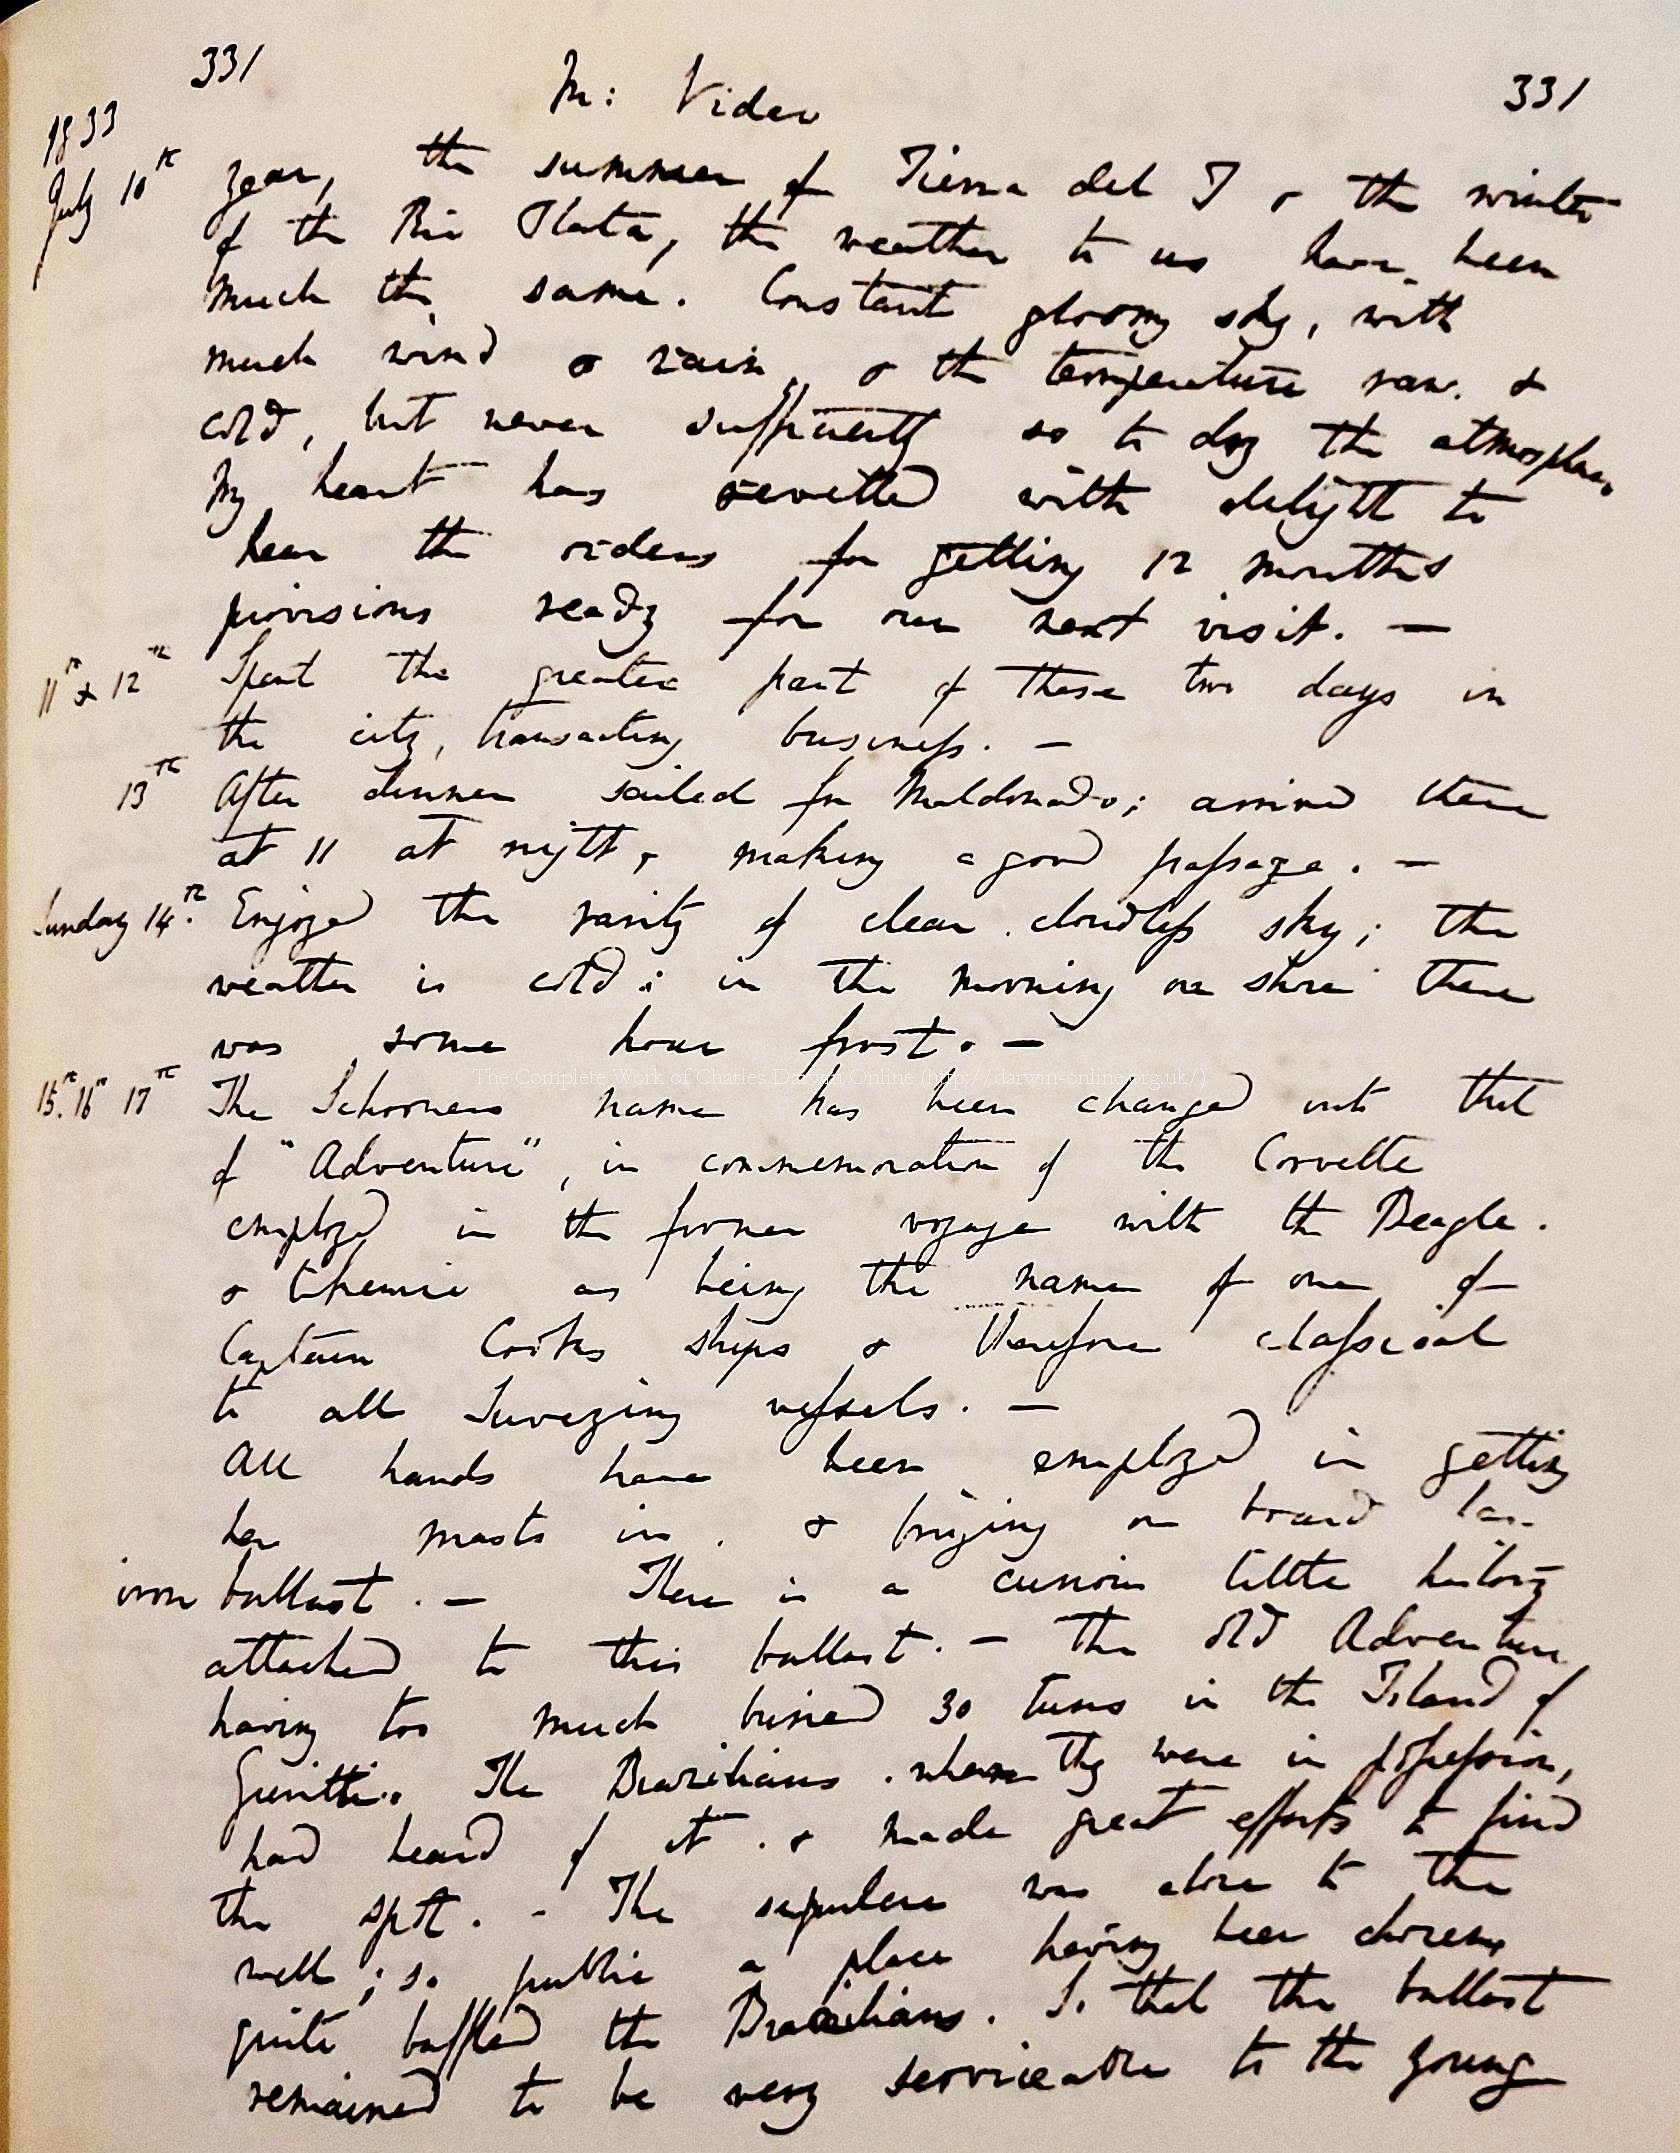 331
M: Video
331
1833
July 10th year, the summer of Tierra del F & the winter
of the Rio Plata, the weather to us have been
much the same. Constant gloomy sky, with
much wind & rain, & the temperature raw. &
cold, but never sufficiently so to dry the atmosphere.
My heart has revelled with delight to
hear the orders for getting 12 months
provisions ready for our next visit. —
11th & 12th Spent the greater part of these two days in
the city, transacting business. —
13th After dinner sailed for Maldonado; arrived there
at 11 at night, making a good passage. —
Sunday 14th. Enjoyed the rarity of clear cloudless sky; the
weather is cold: in the morning on shore there
was some hoar frost. —
The Complete Work of Charles Darwin Online (http://darwin-online.org.uk/)
15th. 16th 17th The Schooners name has been changed into that
of "Adventure", in commemoration of the Corvette
employed in the former voyage with the Beagle.
& likewise as being the name of one of
Captain Cooks ships & therefore classical
to all Surveying vessels. —
All hands have been employed in getting
her masts in. & bringing on board
iron ballast. — There is a curious little history
attached to this ballast. — The old Adventure
having too much buried 30 tuns in the Island of
Gorriti. The Brazilians. whom they were in possession,
had heard of it. & made great efforts to find
the spot. - The sepulcre was close to the
well; so public a place having been chosen
quite baffled the Brazilians. So that the ballast
remained to be very serviceable to the young